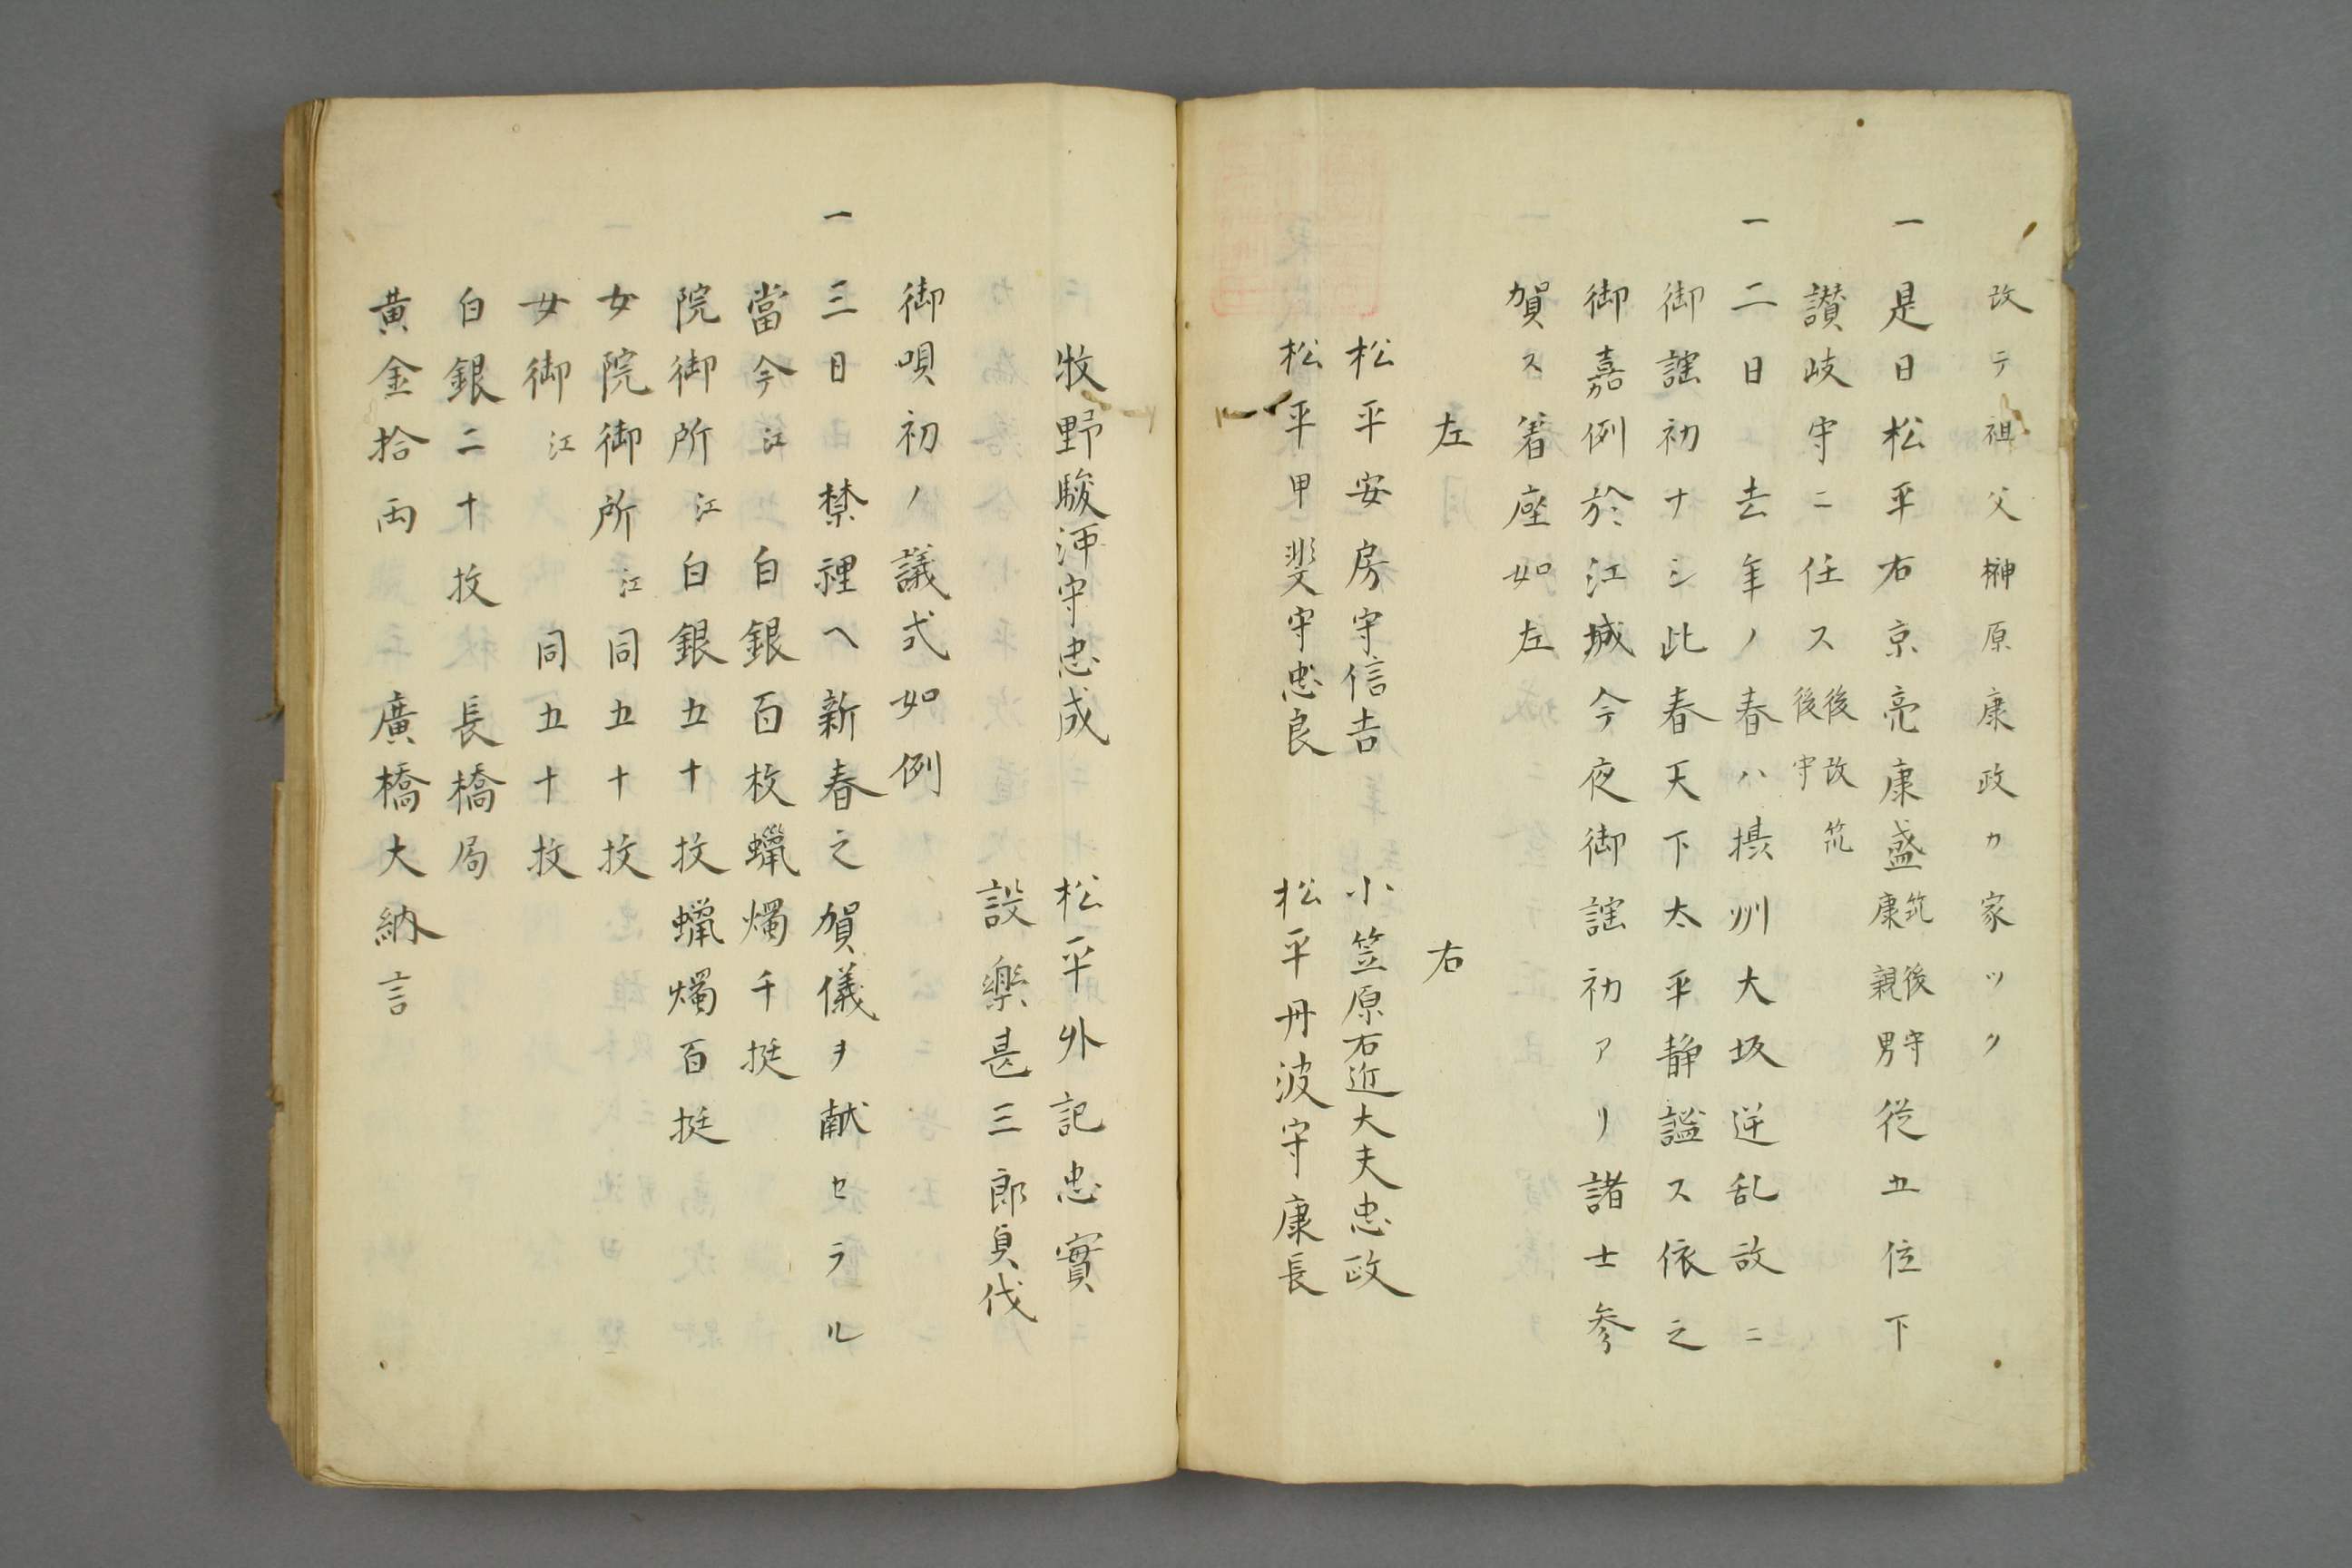 改テ祖父榊原康政カ家ツク
一是日松平右京亮康盛筑後守康親男従五位下
讃岐守ニ任ス後改筑後守
一二日去年ノ春ハ摂州大坂逆乱故ニ
御謡初ナシ此春天下太平静謐ス依之
御嘉例於江城今夜御謡初アリ諸士参
賀ス着座如左
左 右
松平安房守信吉 小笠原右近大夫忠政
松平甲斐守忠良 松平丹波守康長
牧野駿河守忠成 松平外記忠實
設樂甚三郎貞代
御唄初ノ議式如例
一三日禁裡へ新春之賀儀ヲ献セラル
當今江白銀百枚蠟燭千挺
院御所江白銀五十枚蠟燭百挺
女院御所江同五十枚
女御江同五十枚
白銀二十枚長橋局
黄金拾両廣橋大納言